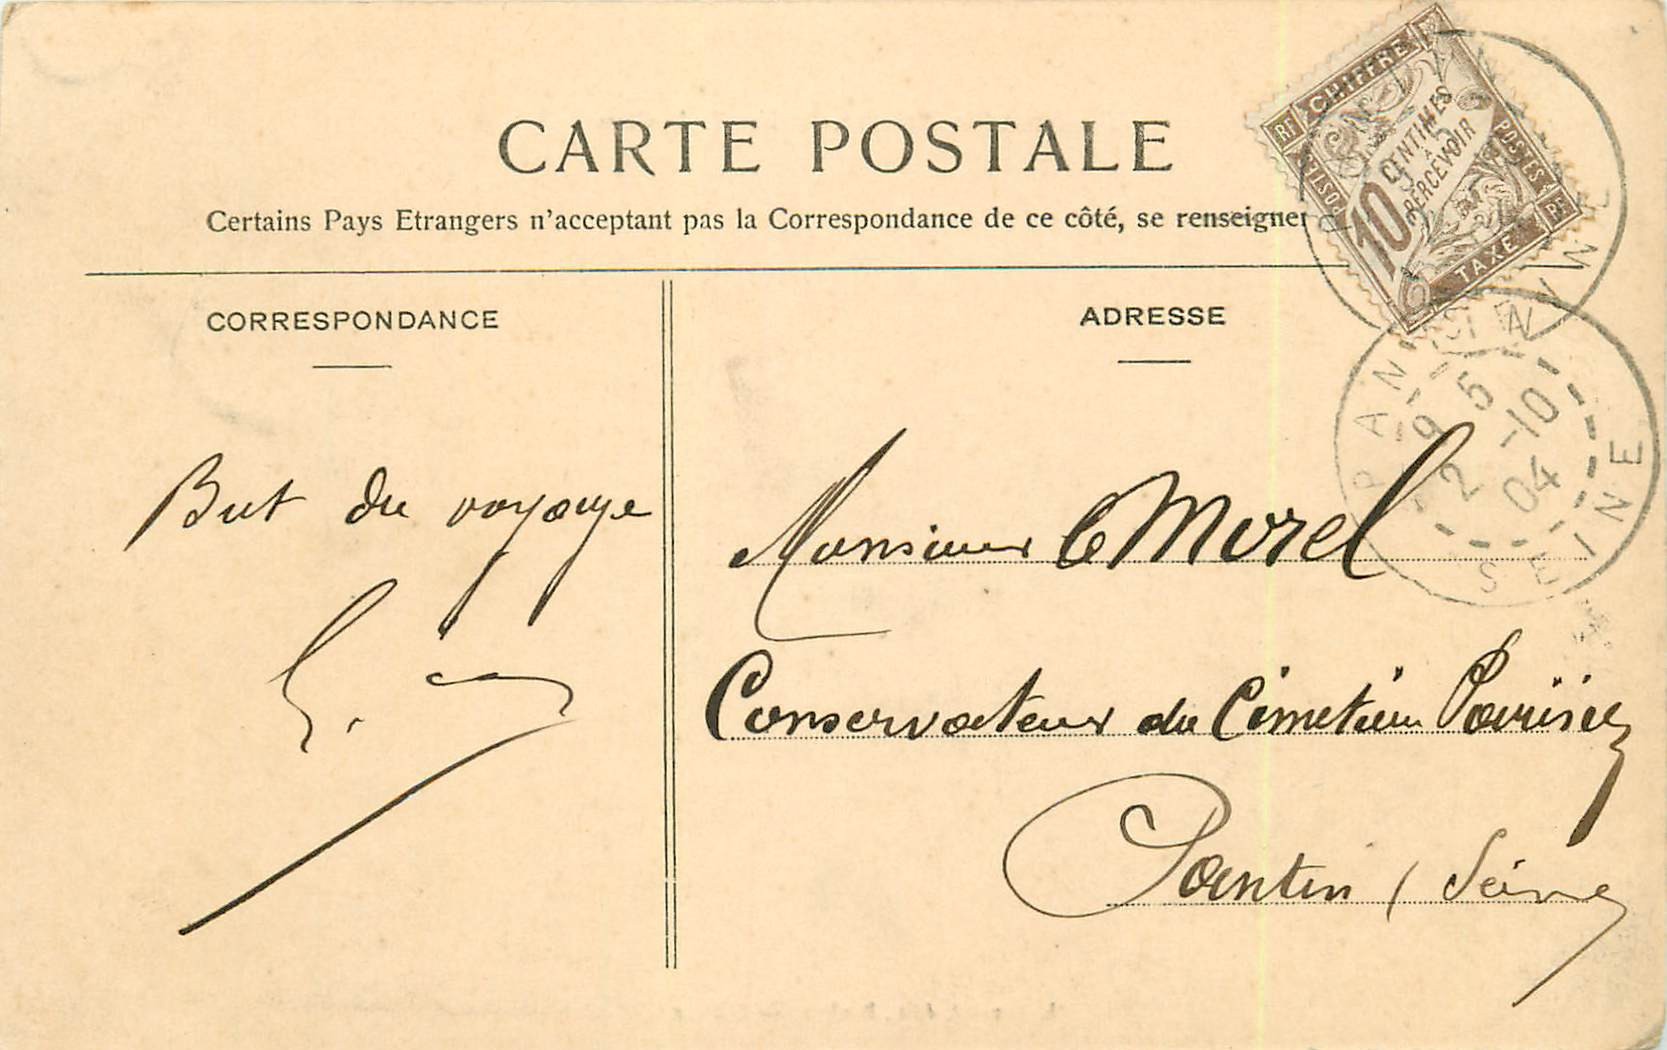 CARTE POSTALE
Certains Pays Etrangers n'acceptant pas la Correspondance de ce côté, se renseigner
CORRESPONDANCE
ADRESSE
RF CHIFFRE
POSTES
RF TAXE
10 CENTIMES
À
PERCEVOIR
PANTIN
9 5
2 -10
04
SEINE
But du voyage
Monsieur Morel
Conservateur du Cimetière Parisien
Pantin (Seine